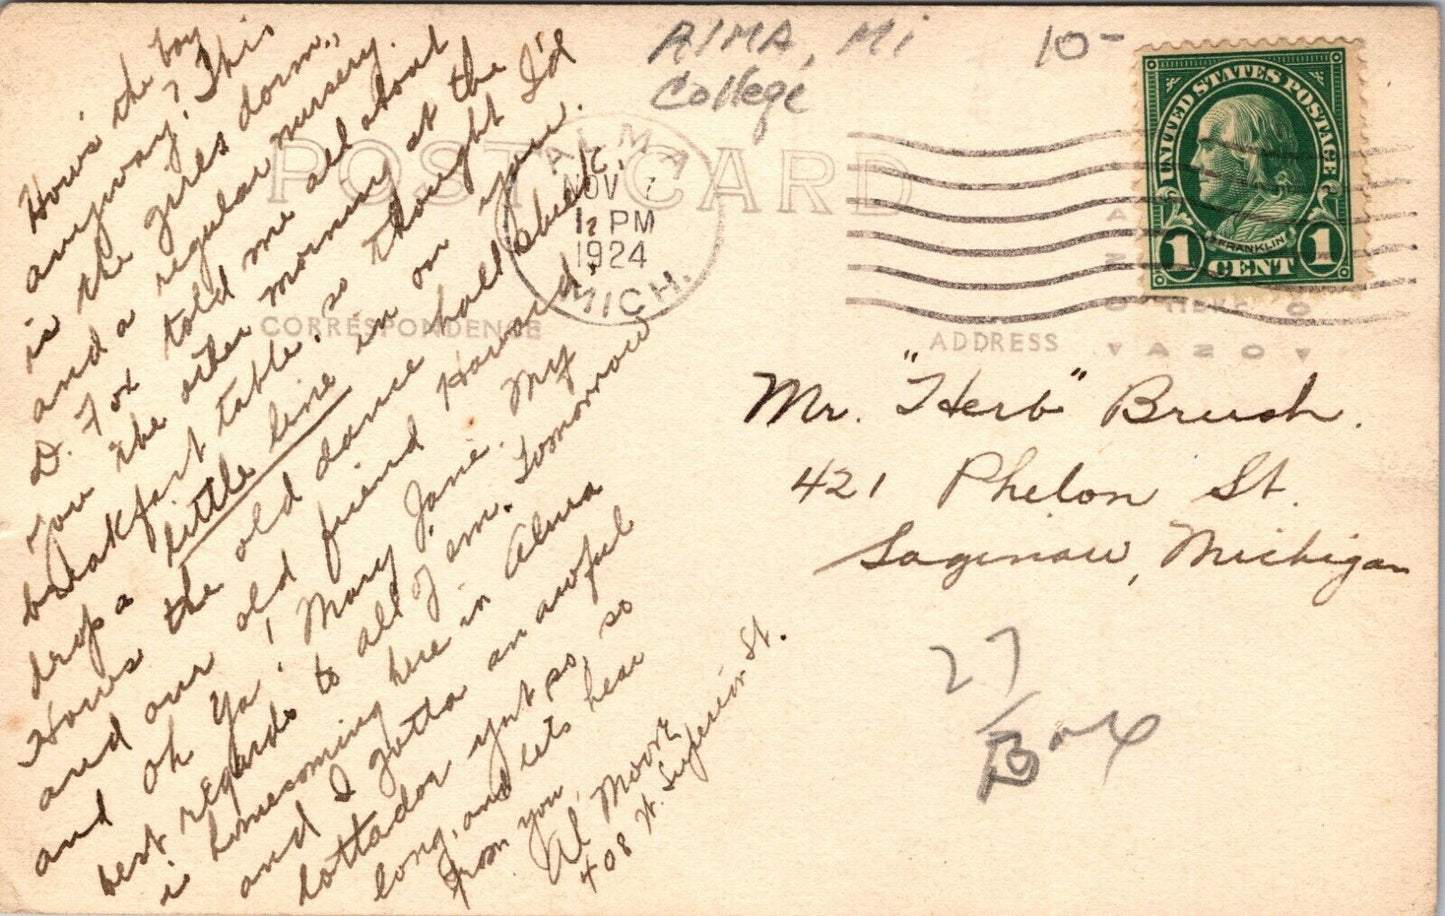 ALMA, Mi 10-
College
POST CARD
ALMA
NOV 7
12 PM
1924
MICH.
UNITED STATES POSTAGE
FRANKLIN
1 CENT 1
CORRESPONDENCE
ADDRESS
AZO
HERE
How's the boy
anyway? This
is the girls dorm.,
and a regular nursery.
D. Fox told me all about
you the other morning at the
breakfast table, so thought I'd
drop a little line in on you.
Hows the old dance hall Sheik,
and our old friend Howard,
and oh Ya! Mary Jane. My
best regards to all of em. Tomorrow
is homecoming here in Alma
and I gotta an awful
lottador yut so, so
long, and lets hear
from you,
Al Moore
408 W. Superior St.
Mr. "Herb" Brush.
421 Phelon St.
Saginaw, Michigan
27
Box